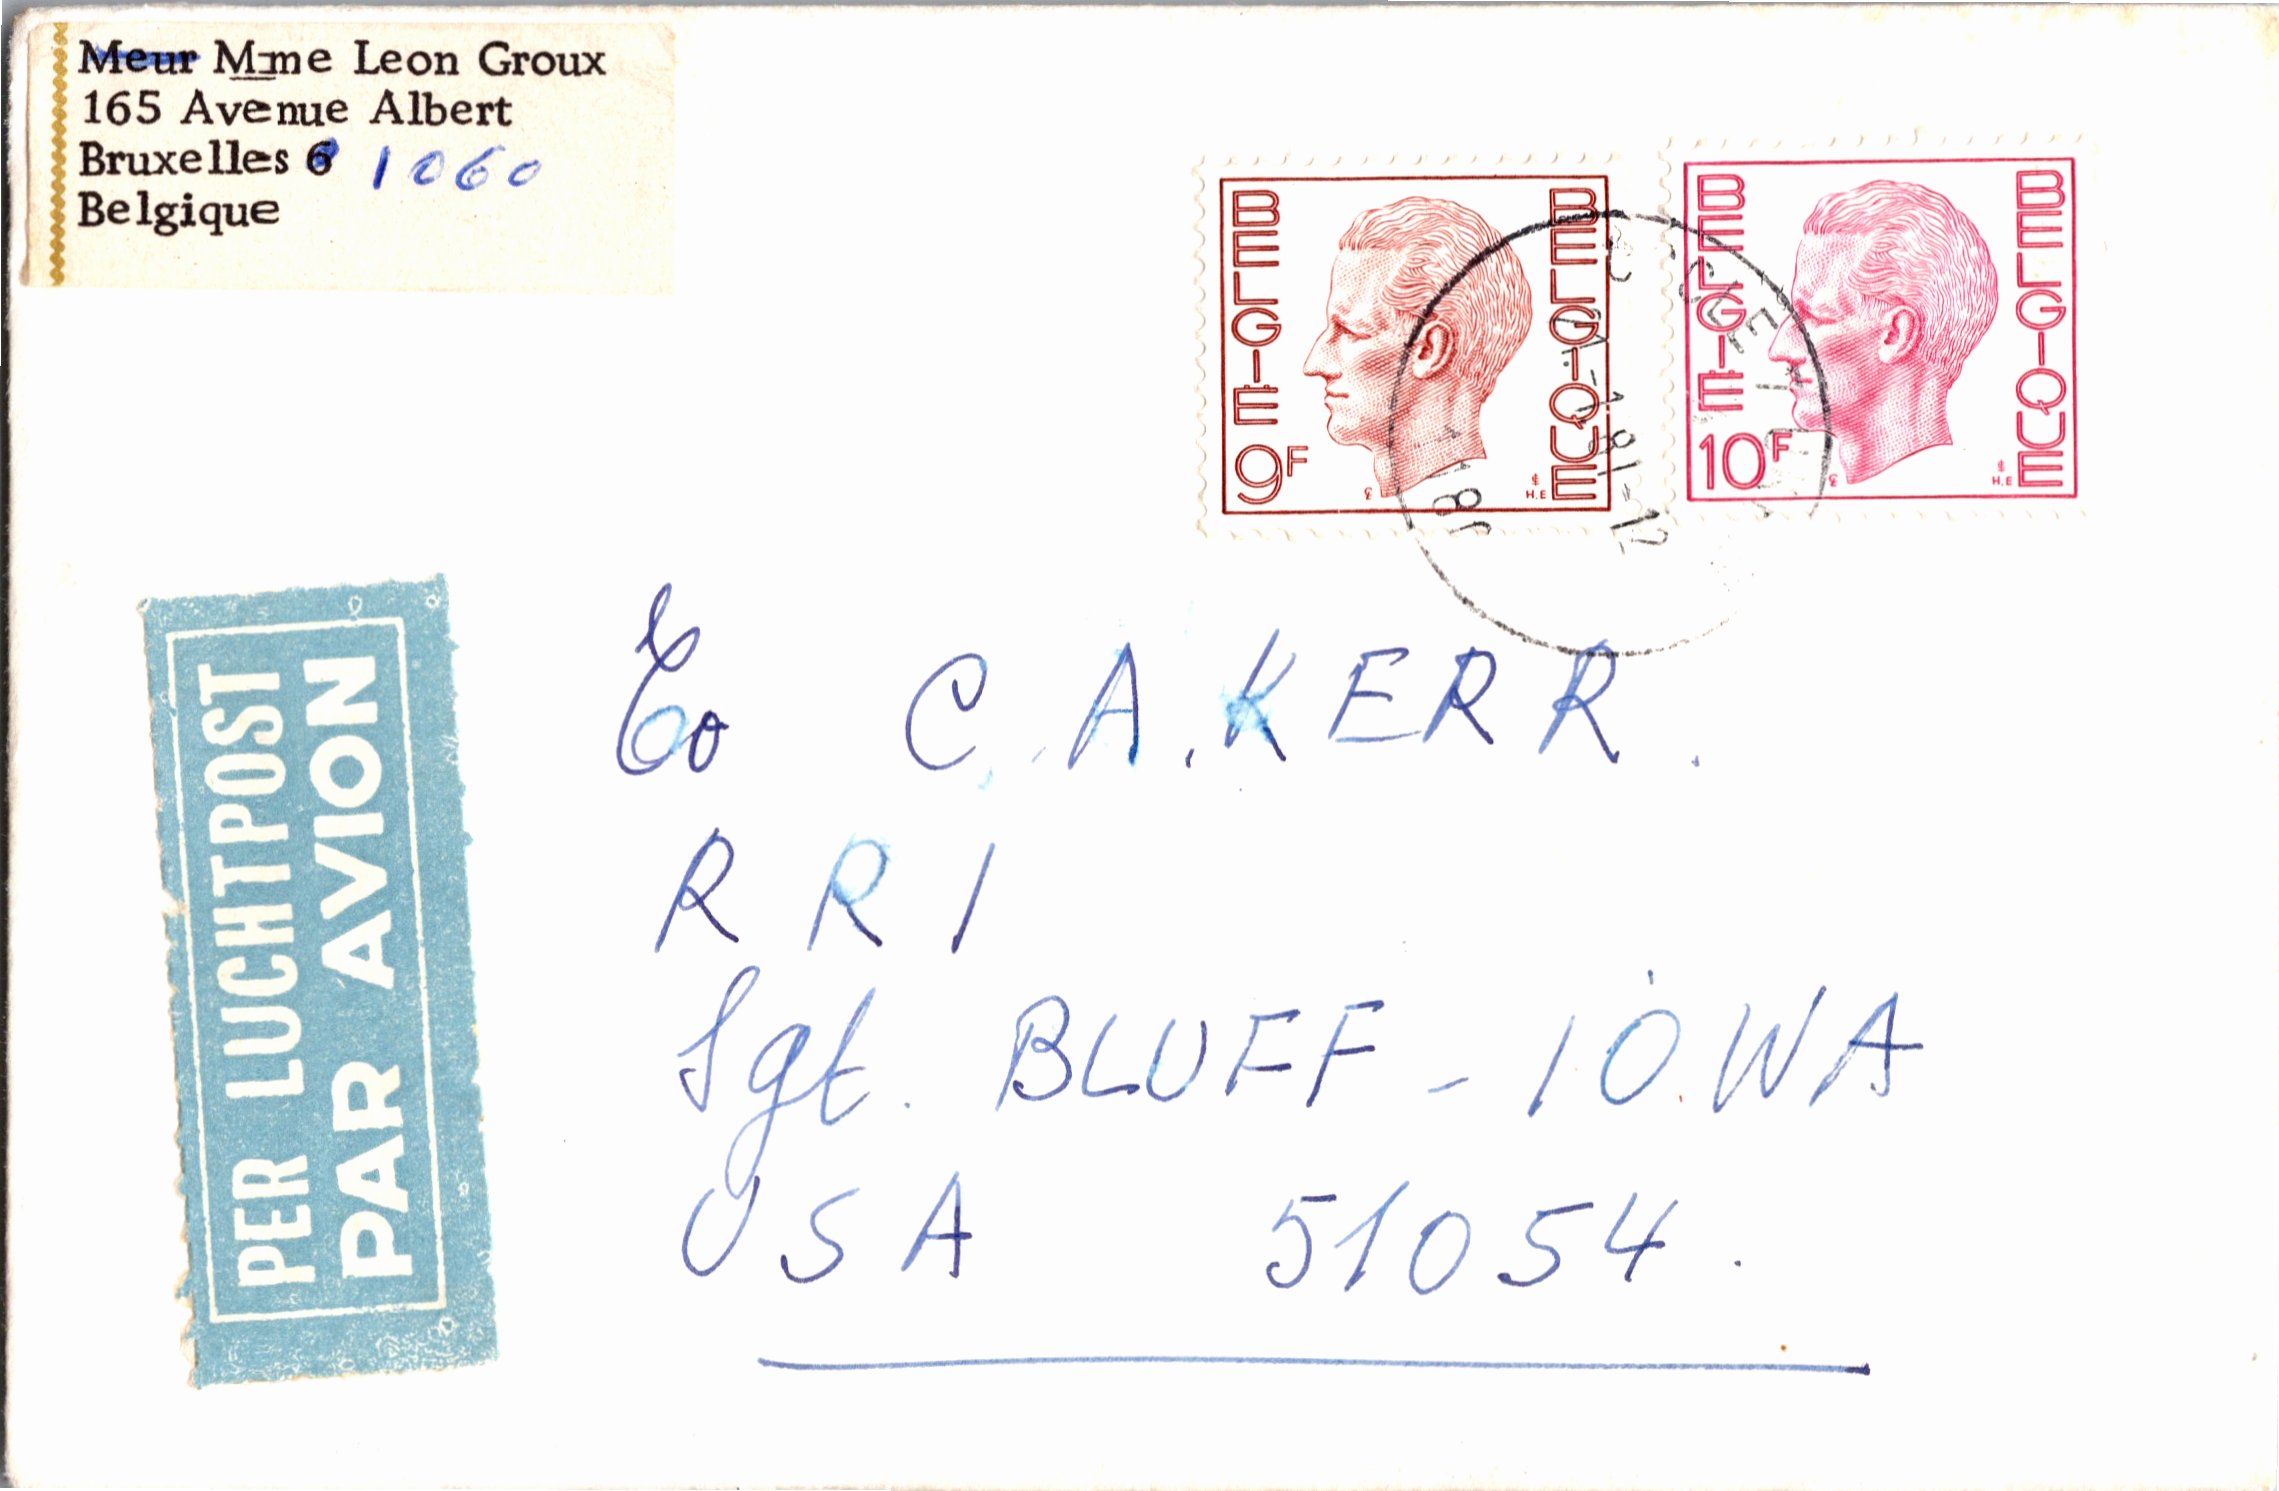 Meur Mme Leon Groux
165 Avenue Albert
Bruxelles 6 1060
Belgique
BELGIË BELGIQUE
9F
H.E
BELGIË BELGIQUE
10F
H.E
PER LUCHTPOST
PAR AVION
To C.A.KERR.
R R 1
Sgt. BLUFF - IOWA
USA 51054.